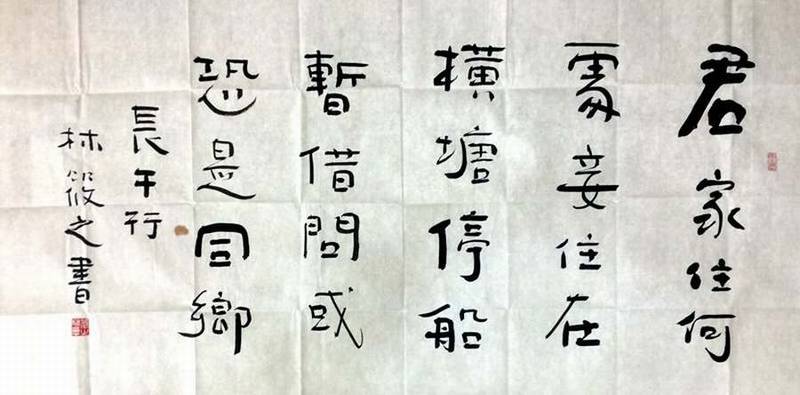 君家住何
處妾住在
橫塘停船
暫借問或
恐是同鄉
長干行
林筱之書